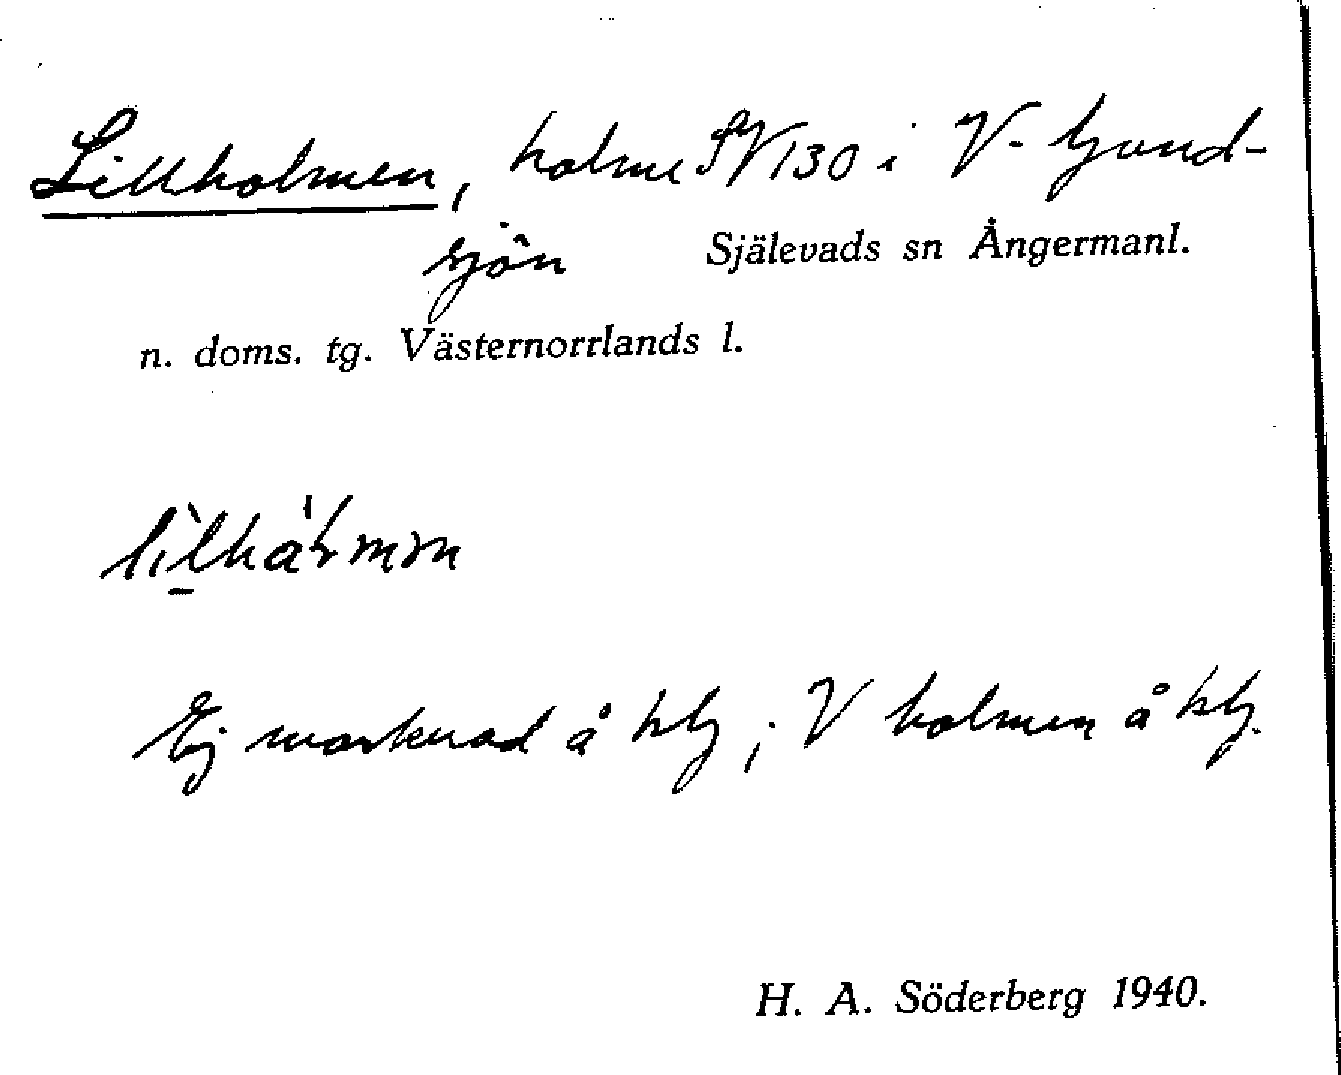 Lillholmen, holme SV 130 i V. Ljusnd-
sjön Själevads sn Ångermanl.
n. doms. tg. Västernorrlands l.
Ej markerad å kbl; V holmen å kbl.
H. A. Söderberg 1940.